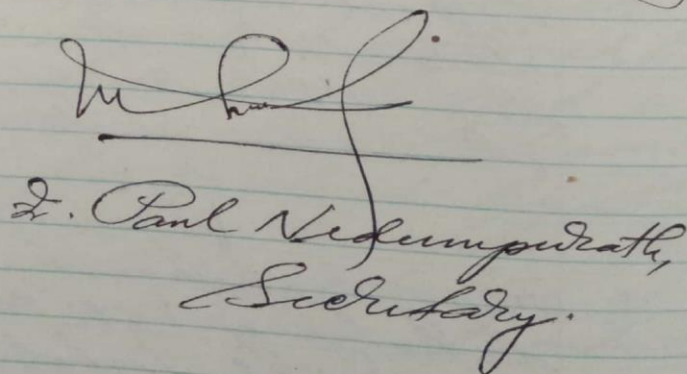 2. Paul Nedumpurath,
Secretary.